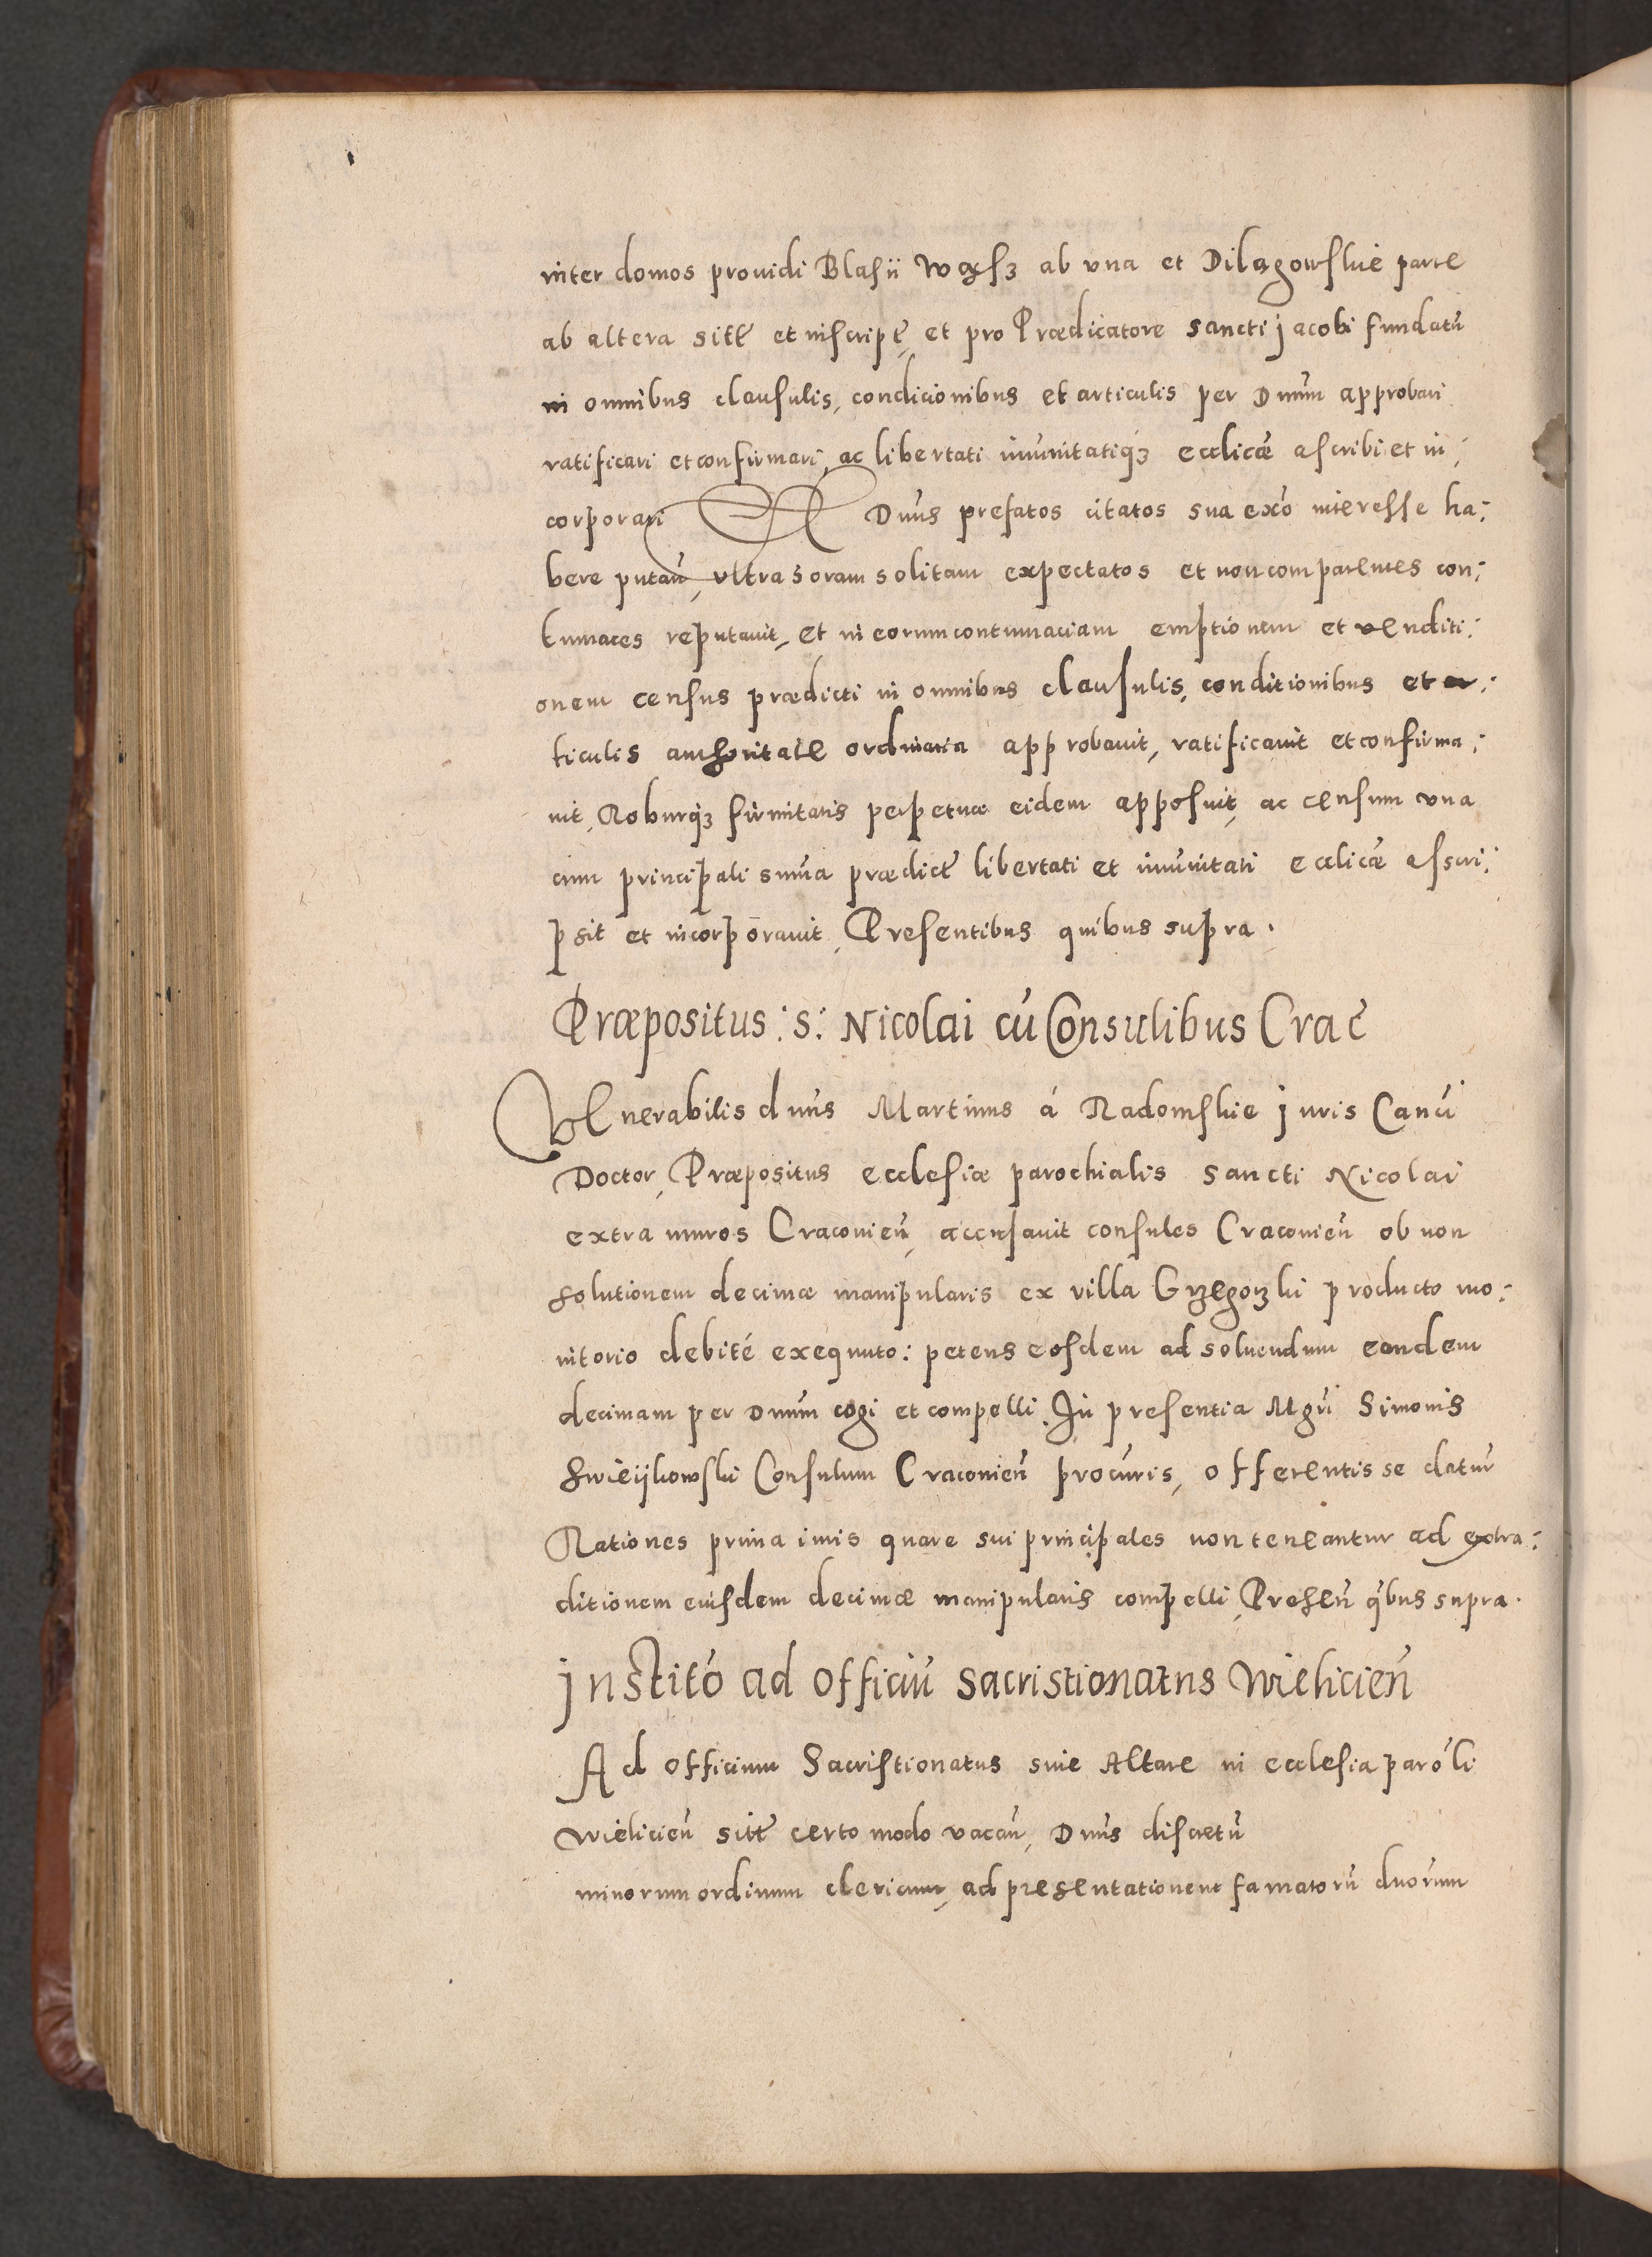 inter domos prouidi Blasii Wąssz ab vna et Dilągowskie parte
ab altera sitt̃ et inscript̃, et pro Prædicatore sancti jacobi fundatū
in omnibus clausulis, condicionibus et articulis per Dnūm approbari
ratificari et confirmari, ac libertati im̄unitatiqꝫ ecclicæ ascribi et in:
corporari Dnūs prefatos citatos sua ex̄o interesse ha:
bere putan̄, vltra horam solitam expectatos et non comparentes con:
tumaces reputauit, et in eorum contumaciam emptionem et venditi:
onem census prædicti in omnibus clausulis, conditionibus et ar:
ticulis authoritate ordinaria approbauit, ratificauit et confirma:
uit, Roburqꝫ firmitatis perpetuæ eidem apposuit, ac censum vna
cum principali sum̄a prædict̃ libertati et im̄unitati ecclicæ asscri:
psit et incorporauit, Presentibus quibus supra.
Præpositus :s: Nicolai cū Consulibus Crac̄
Venerabilis dnūs Martinus á Radomskie juris Can̄ci
Doctor, Præpositus ecclesiæ parochialis sancti Nicolai
extra muros Cracouien̄, accusauit consules Cracouien̄ ob non
solutionem decimæ manipularis ex villa Grzegorzki producto mo:
nitorio debité exequuto: petens eosdem ad soluendum eandem
decimam per Dnūm cogi et compelli. In presentia Mgrī Simonis
Swieijkowski Consulum Cracouien̄ procūris, offerentis se datur̄
Rationes prima iuris quare sui principales non teneantur ad extra:
ditionem eiusdem decimæ manipularis compelli, Presen̄ q̄bus supra.
jnstitō ad officiū sacristionatus Wielicien̄
Ad officium Sacristionatus siue Altare in ecclesia parōli
Wielicien̄ sitt̃ certo modo vacan̄, Dnūs discretū
minorum ordinum clericum, ad presentationem famatorū duorum